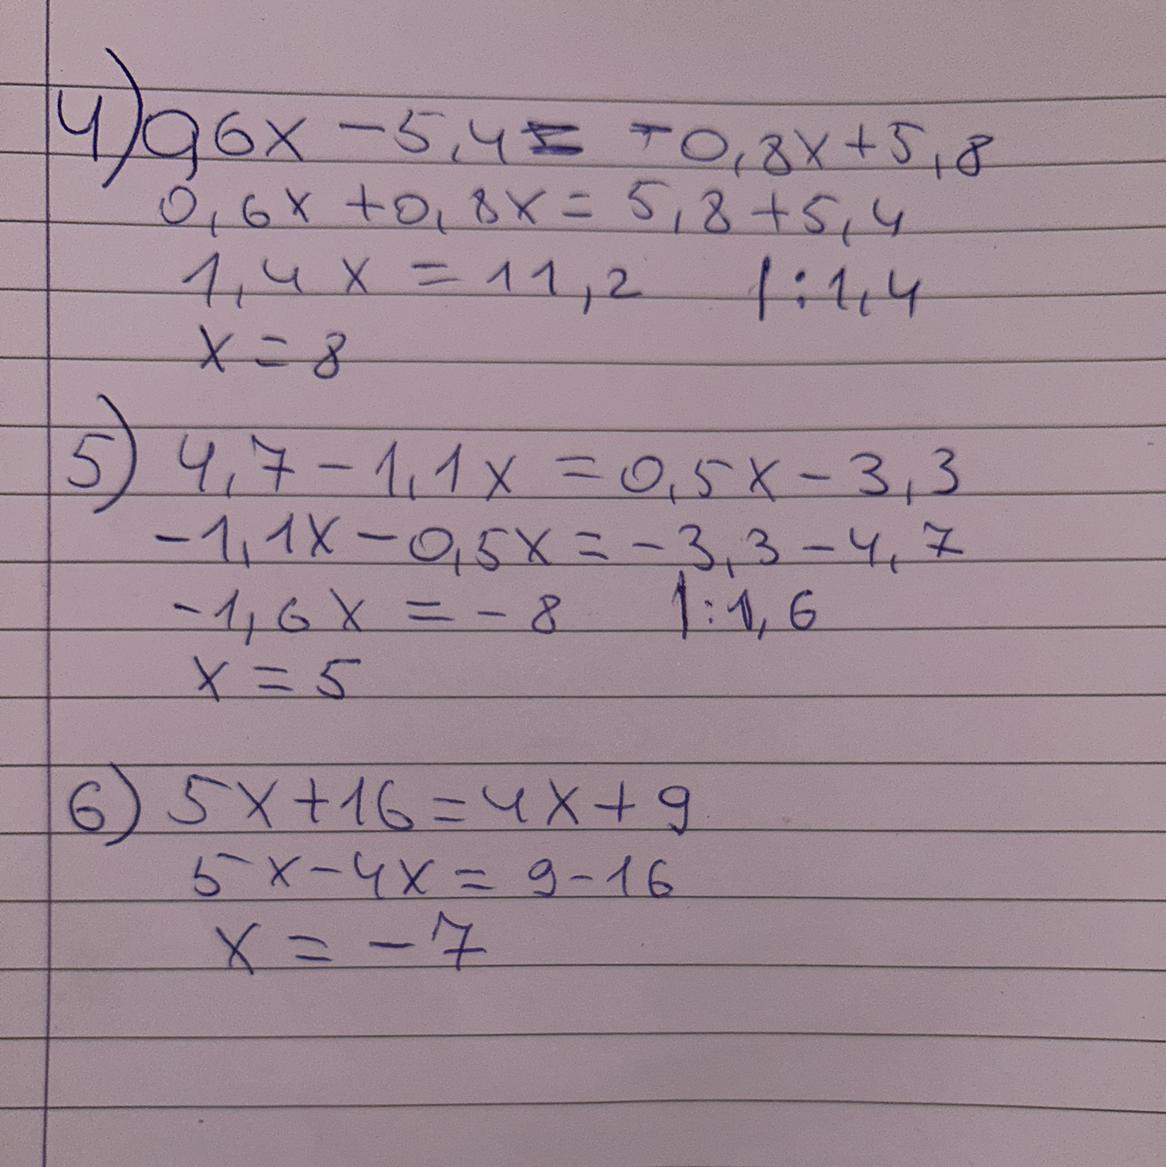 4) 0,6x - 5,4 = -0,8x + 5,8
0,6x + 0,8x = 5,8 + 5,4
1,4x = 11,2 |:1,4
x = 8
5) 4,7 - 1,1x = 0,5x - 3,3
-1,1x - 0,5x = -3,3 - 4,7
-1,6x = -8 |:1,6
x = 5
6) 5x + 16 = 4x + 9
5x - 4x = 9 - 16
x = -7